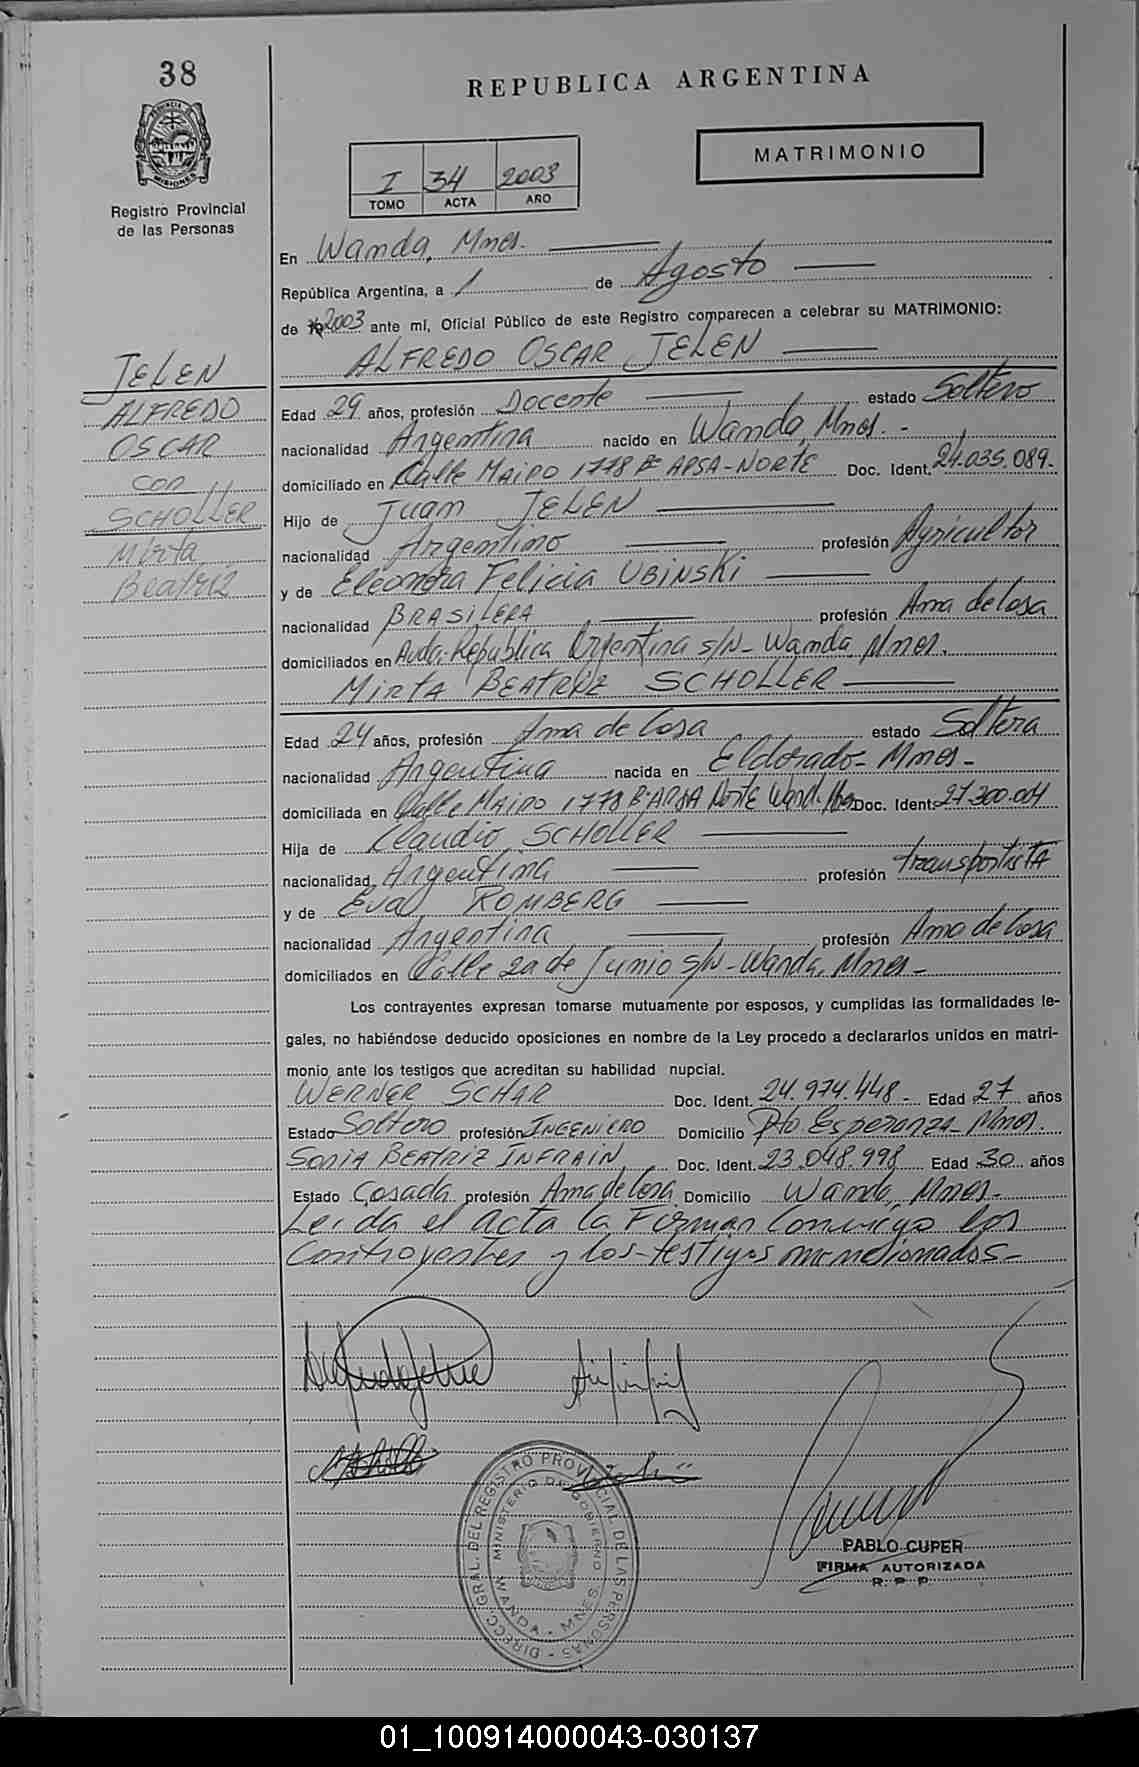 38
REPUBLICA ARGENTINA
PROVINCIA DE MISIONES
Registro Provincial
de las Personas
I 34 2003
TOMO ACTA AÑO
MATRIMONIO
En Wanda, Mnes.
República Argentina, a 1 de Agosto
de 19 2003 ante mí, Oficial Público de este Registro comparecen a celebrar su MATRIMONIO:
ALFREDO OSCAR JELEN
JELEN
ALFREDO
OSCAR
con
SCHOLLER
Mirta
Beatriz
Edad 29 años, profesión Docente estado Soltero
nacionalidad Argentina nacido en Wanda, Mnes. -
domiciliado en Calle MAIPO 1778 Bº APSA-NORTE Doc. Ident. 24.035.089-
Hijo de Juan JELEN
nacionalidad Argentino profesión Agricultor
y de Eleonora Felicia UBINSKI
nacionalidad BRASILERA profesión Ama de Casa
domiciliados en Avda. República Argentina s/N- Wanda, Mnes.
MIRTA BEATRIZ SCHOLLER
Edad 24 años, profesión Ama de Casa estado Soltera
nacionalidad Argentina nacida en Eldorado- Mnes-
domiciliada en Calle MAIPO 1778 Bº APSA Norte Wand. Mnes Doc. Ident. 27.300.004
Hija de Claudio SCHOLLER
nacionalidad Argentina profesión transportista
y de Eva ROMBERG
nacionalidad Argentina profesión Ama de Casa
domiciliados en Calle 20 de Junio s/N-Wanda, Mnes-
Los contrayentes expresan tomarse mutuamente por esposos, y cumplidas las formalidades le-
gales, no habiéndose deducido oposiciones en nombre de la Ley procedo a declararlos unidos en matri-
monio ante los testigos que acreditan su habilidad nupcial.
WERNER SCHAR Doc. Ident. 24.974.448- Edad 27 años
Estado Soltero profesión INGENIERO Domicilio Pto. Esperanza- Mnes.
SONIA BEATRIZ INFRAIN Doc. Ident. 23.048.998 Edad 30 años
Estado Casada profesión Ama de Casa Domicilio Wanda, Mnes-
Leída el Acta la Firman Conmigo los
Contrayentes y los testigos mencionados-
DIRECC. GRAL. DEL REGISTRO PROVINCIAL DE LAS PERSONAS
MINISTERIO DE GOBIERNO
WANDA - MNES.
PABLO CUPER
FIRMA AUTORIZADA
R. P. P.
01_100914000043-030137